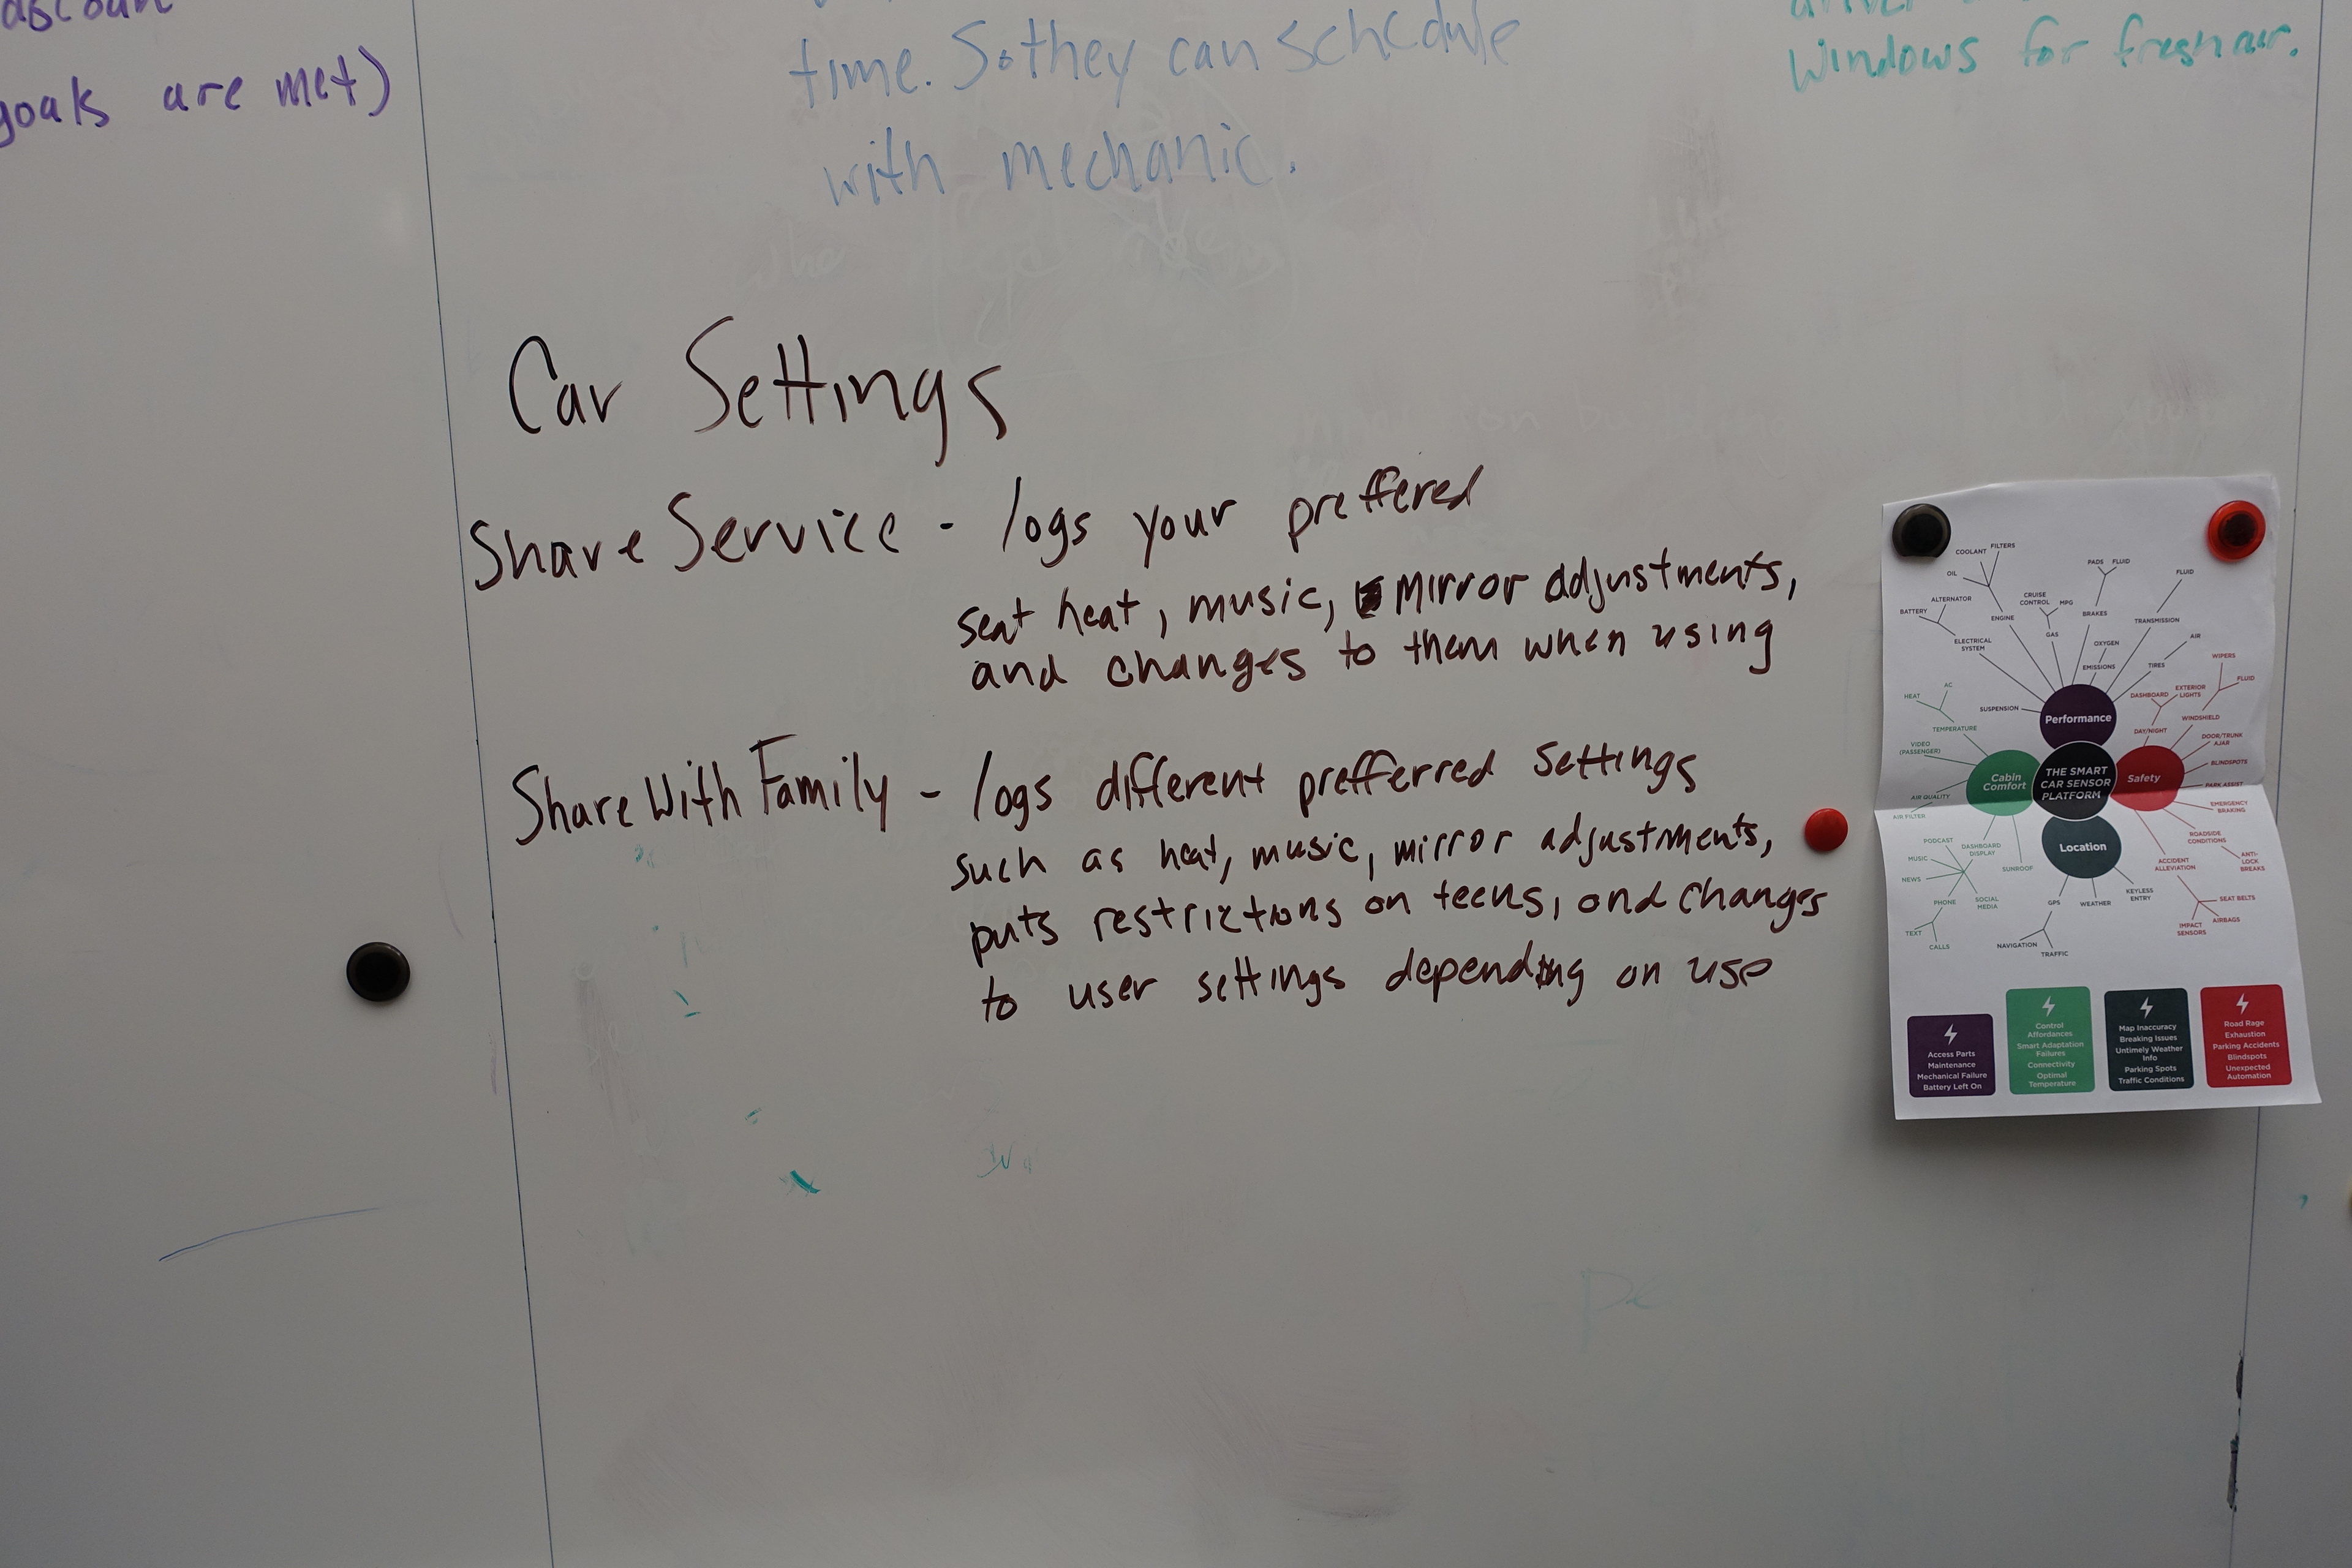 goals are met)
time. So they can schedule
with mechanic.
windows for fresh air.
Car Settings
Share Service - logs your preffered
seat heat, music, mirror adjustments,
and changes to them when using
Share With Family - logs different prefferred settings
such as heat, music, mirror adjustments,
puts restrictions on teens, and changes
to user settings depending on use
COOLANT
FILTERS
OIL
ALTERNATOR
BATTERY
ENGINE
ELECTRICAL
SYSTEM
CRUISE
CONTROL
MPG
GAS
PADS
FLUID
BRAKES
FLUID
TRANSMISSION
OXYGEN
EMISSIONS
AIR
TIRES
SUSPENSION
Performance
WIPERS
FLUID
DASHBOARD
EXTERIOR
LIGHTS
WINDSHIELD
DAY/NIGHT
DOOR/TRUNK
AJAR
BLINDSPOTS
PARK ASSIST
EMERGENCY
BRAKING
ROADSIDE
CONDITIONS
ANTI-
LOCK
BREAKS
ACCIDENT
ALLEVIATION
SEAT BELTS
AIRBAGS
IMPACT
SENSORS
Safety
THE SMART
CAR SENSOR
PLATFORM
HEAT
AC
TEMPERATURE
VIDEO
(PASSENGER)
AIR QUALITY
AIR FILTER
Cabin
Comfort
PODCAST
DASHBOARD
DISPLAY
MUSIC
SUNROOF
NEWS
PHONE
SOCIAL
MEDIA
TEXT
CALLS
Location
GPS
WEATHER
KEYLESS
ENTRY
NAVIGATION
TRAFFIC
Access Parts
Maintenance
Mechanical Failure
Battery Left On
Control
Affordances
Smart Adaptation
Failures
Connectivity
Optimal
Temperature
Map Inaccuracy
Breaking Issues
Untimely Weather
Info
Parking Spots
Traffic Conditions
Road Rage
Exhaustion
Parking Accidents
Blindspots
Unexpected
Automation